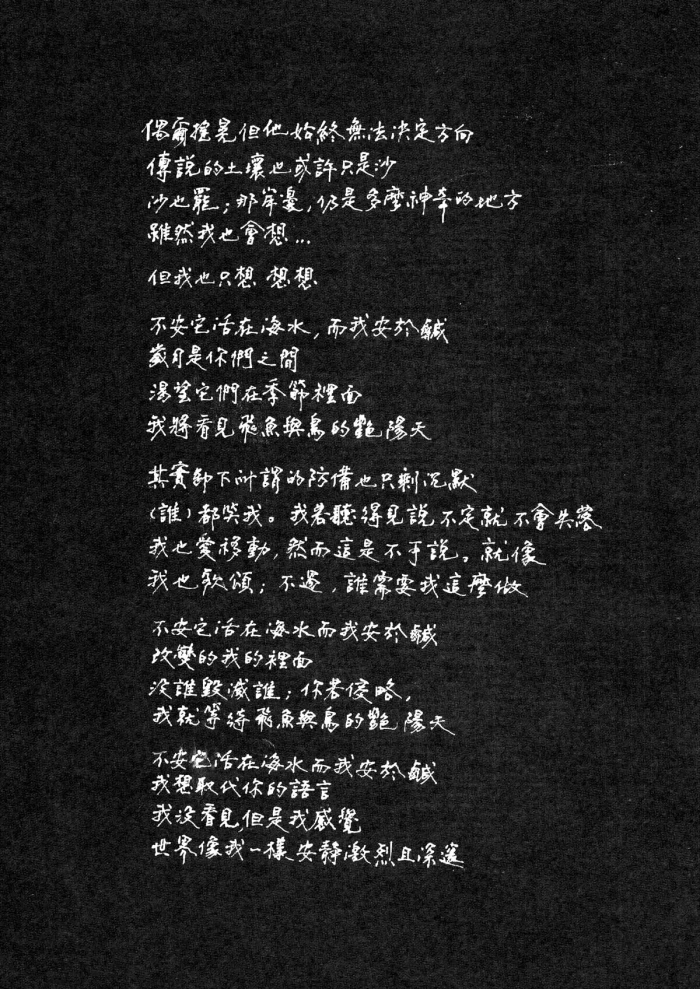 偶爾搖晃但他始終無法決定方向
傳說的土壤也或許只是沙
沙也罷；那岸邊，仍是多麼神奇的地方
雖然我也會想...
但我也只想 想想
不安它活在海水，而我安於鹹
歲月是你們之間
渴望它們在季節裡面
我將看見飛魚與鳥的艷陽天
其實卸下所謂的防備也只剩沉默
（誰）都笑我。我若聽得見說不定就不會失落
我也愛移動，然而這是不手說。就像
我也歌頌；不過，誰需要我這麼做
不安它活在海水而我安於鹹
改變的我的裡面
沒誰毀滅誰；你若侵略，
我就等待飛魚與鳥的艷陽天
不安它活在海水而我安於鹹
我想取代你的語言
我沒看見，但是我感覺
世界像我一樣安靜激烈且深邃